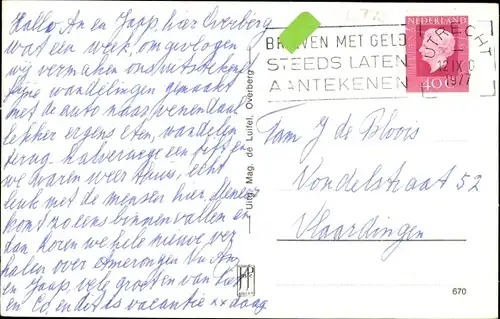 Hallo, An en Jaap, hier Overberg
wat een week, omgevlogen
wij vermaken ons uitstekend
fijne wandelingen gemaakt
met de auto naar Venendaal
lekker ergens eten, wandelen
terug halverwege een lift en
we waren weer thuis, echt
leuk met de mensen hier.
komt zo eens binnen vallen en
dan horen we hele nieuwe ver
halen over Amerongen. Da An
en Jaap vele groeten van
en Co, en dit is vacantie xx daag
Uitg. Mag. de Luifel, Overberg
BRIEVEN MET GELD
STEEDS LATEN
AANTEKENEN
UTRECHT
12 IX
1977
NEDERLAND
40 c
Fam J de Bloois
Vondelstraat 52
Vlaardingen
670